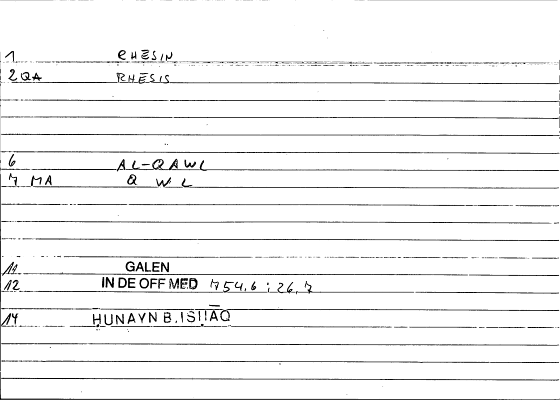 1 RHESIN
2 QA RHESIS
6 AL-QAWL
7 MA Q W L
11 GALEN
12 IN DE OFF MED 754.6 : 26.7
14 ḤUNAYN B. ISḤĀQ